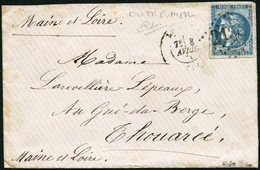 Maine et Loire
OUTRE MER
8
AVRIL
Madame
Larevellière Lépeaux,
Au Gué-du-Berge,
Thouarcé
Maine et Loire